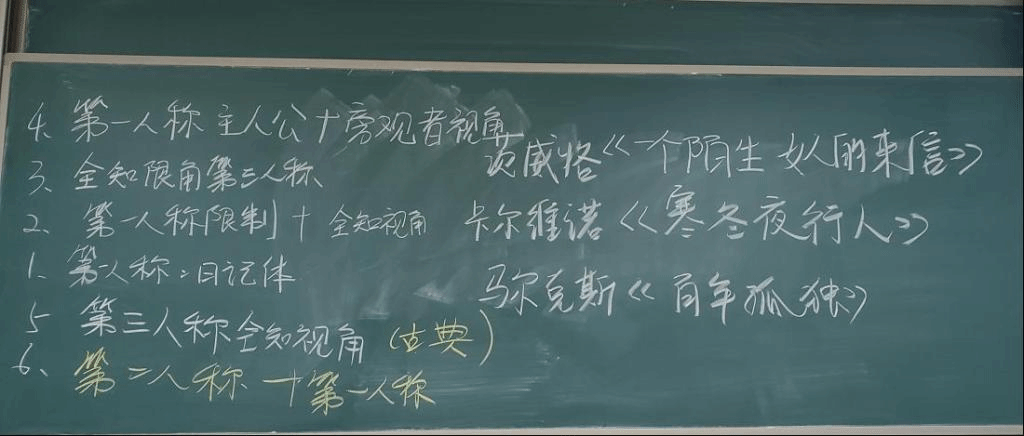 4、第一人称主人公+旁观者视角
3、全知限角第三人称
2、第一人称限制+全知视角
1、第一人称:日记体
5 第三人称全知视角(古典)
6、第二人称+第一人称
茨威格《一个陌生女人的来信》
卡尔维诺《寒冬夜行人》
马尔克斯《百年孤独》